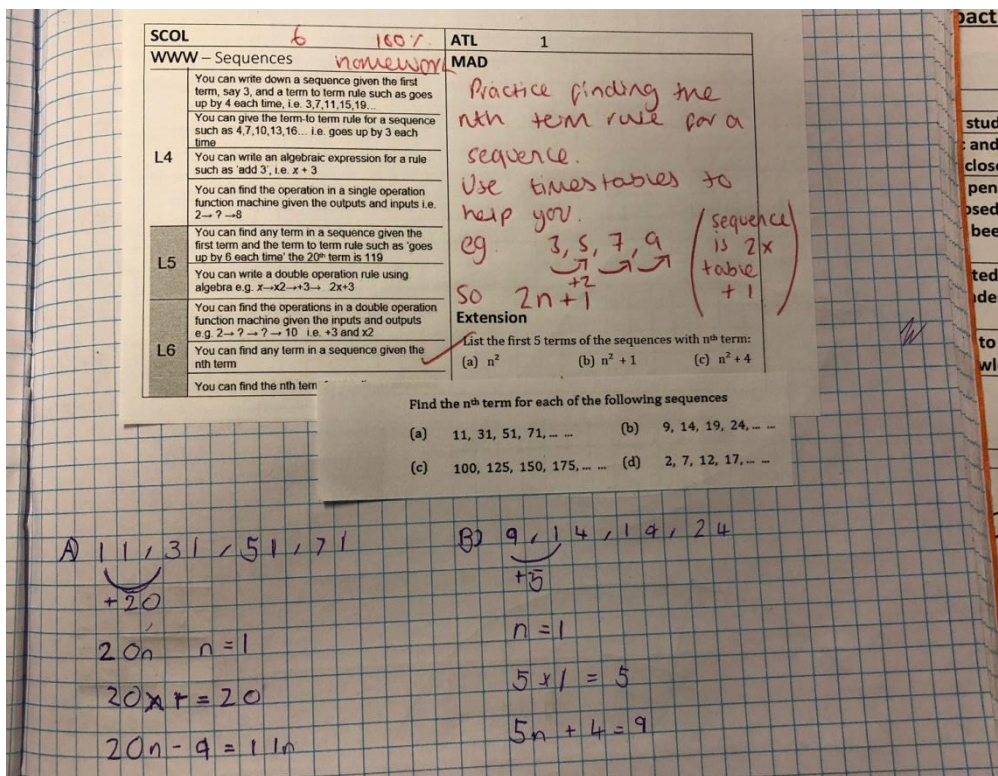 SCOL 6 100% ATL 1
WWW – Sequences homework MAD
L4
You can write down a sequence given the first
term, say 3, and a term to term rule such as goes
up by 4 each time, i.e. 3,7,11,15,19...
You can give the term-to term rule for a sequence
such as 4,7,10,13,16... i.e. goes up by 3 each
time
You can write an algebraic expression for a rule
such as 'add 3', i.e. x + 3
You can find the operation in a single operation
function machine given the outputs and inputs i.e.
2→ ? →8
L5
You can find any term in a sequence given the
first term and the term to term rule such as 'goes
up by 6 each time' the 20th term is 119
You can write a double operation rule using
algebra e.g. x→x2→+3→ 2x+3
L6
You can find the operations in a double operation
function machine given the inputs and outputs
e.g. 2→ ? → ? → 10 i.e. +3 and x2
You can find any term in a sequence given the
nth term
You can find the nth term
Practice finding the
nth term rule for a
sequence.
Use timestables to
help you.
eg. 3, 5, 7, 9
+2
(sequence
is 2x
table
+ 1)
So 2n + 1
Extension
List the first 5 terms of the sequences with nth term:
(a) n² (b) n² + 1 (c) n² + 4
Find the nth term for each of the following sequences
(a) 11, 31, 51, 71, ... ... (b) 9, 14, 19, 24, ... ...
(c) 100, 125, 150, 175, ... ... (d) 2, 7, 12, 17, ... ...
A) 11, 31, 51, 71
+20
20n n = 1
20 x 1 = 20
20n - 9 = 11n
B) 9, 14, 19, 24
+5
n = 1
5 x 1 = 5
5n + 4 = 9
pact
stud
and
close
pen
osed
bee
ted
to